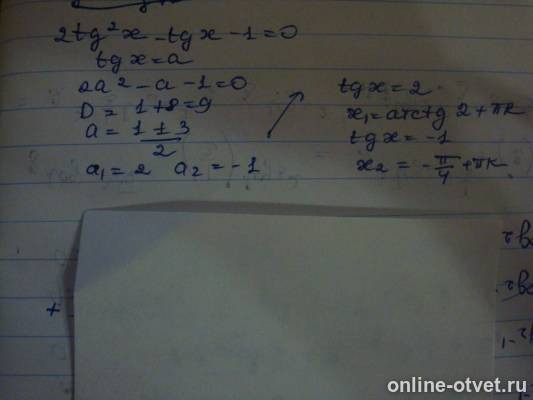 2tg²x - tgx - 1 = 0
tgx = a
2a² - a - 1 = 0
D = 1+8 = 9
a = 1 ± 3
2
a₁ = 2 a₂ = -1
tgx = 2
x₁ = arctg 2 + πk
tgx = -1
x₂ = -π/4 + πk
+
online-otvet.ru